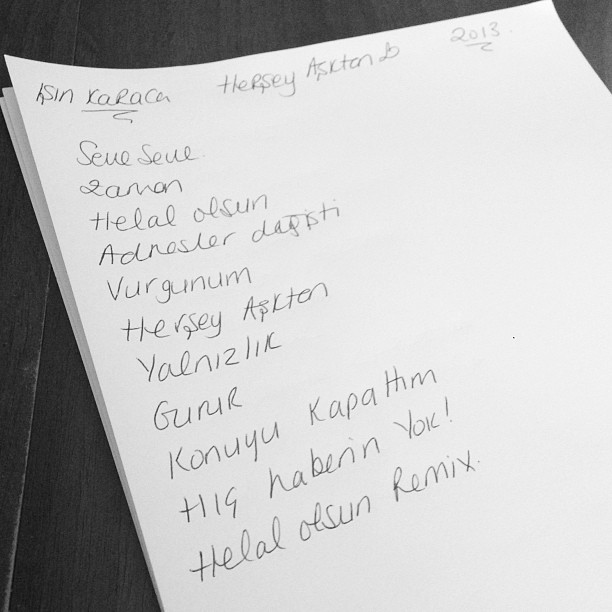 Işın KARACA Herşey Aşktan 2013
Seve Seve
Zaman
Helal olsun
Adresler değişti
Vurgunum
Herşey Aşktan
Yalnızlık
Gurur
Konuyu Kapattım
Hiç haberin Yok!
Helal olsun Remix.